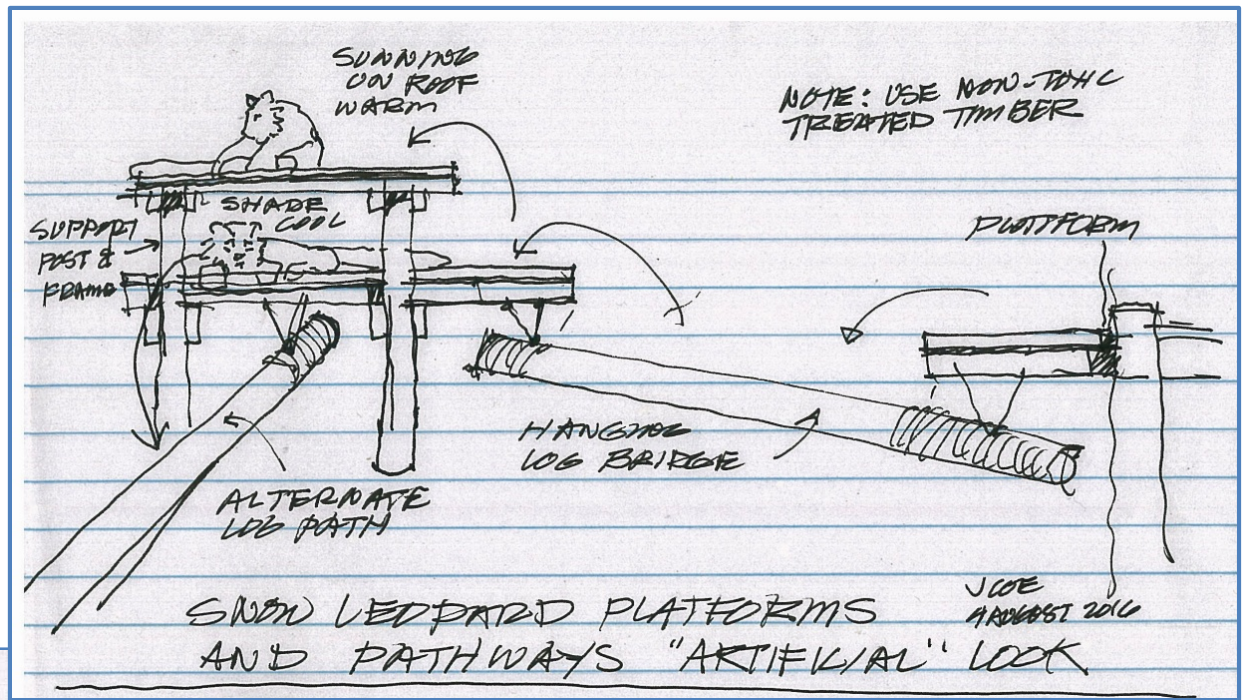 SUNNING
ON ROOF
WARM
NOTE: USE NON-TOXIC
TREATED TIMBER
SHADE
COOL
SUPPORT
POST &
FRAME
PLATFORM
HANGING
LOG BRIDGE
ALTERNATE
LOG PATH
JCOE
4 AUGUST 2016
SNOW LEOPARD PLATFORMS
AND PATHWAYS "ARTIFICIAL" LOOK